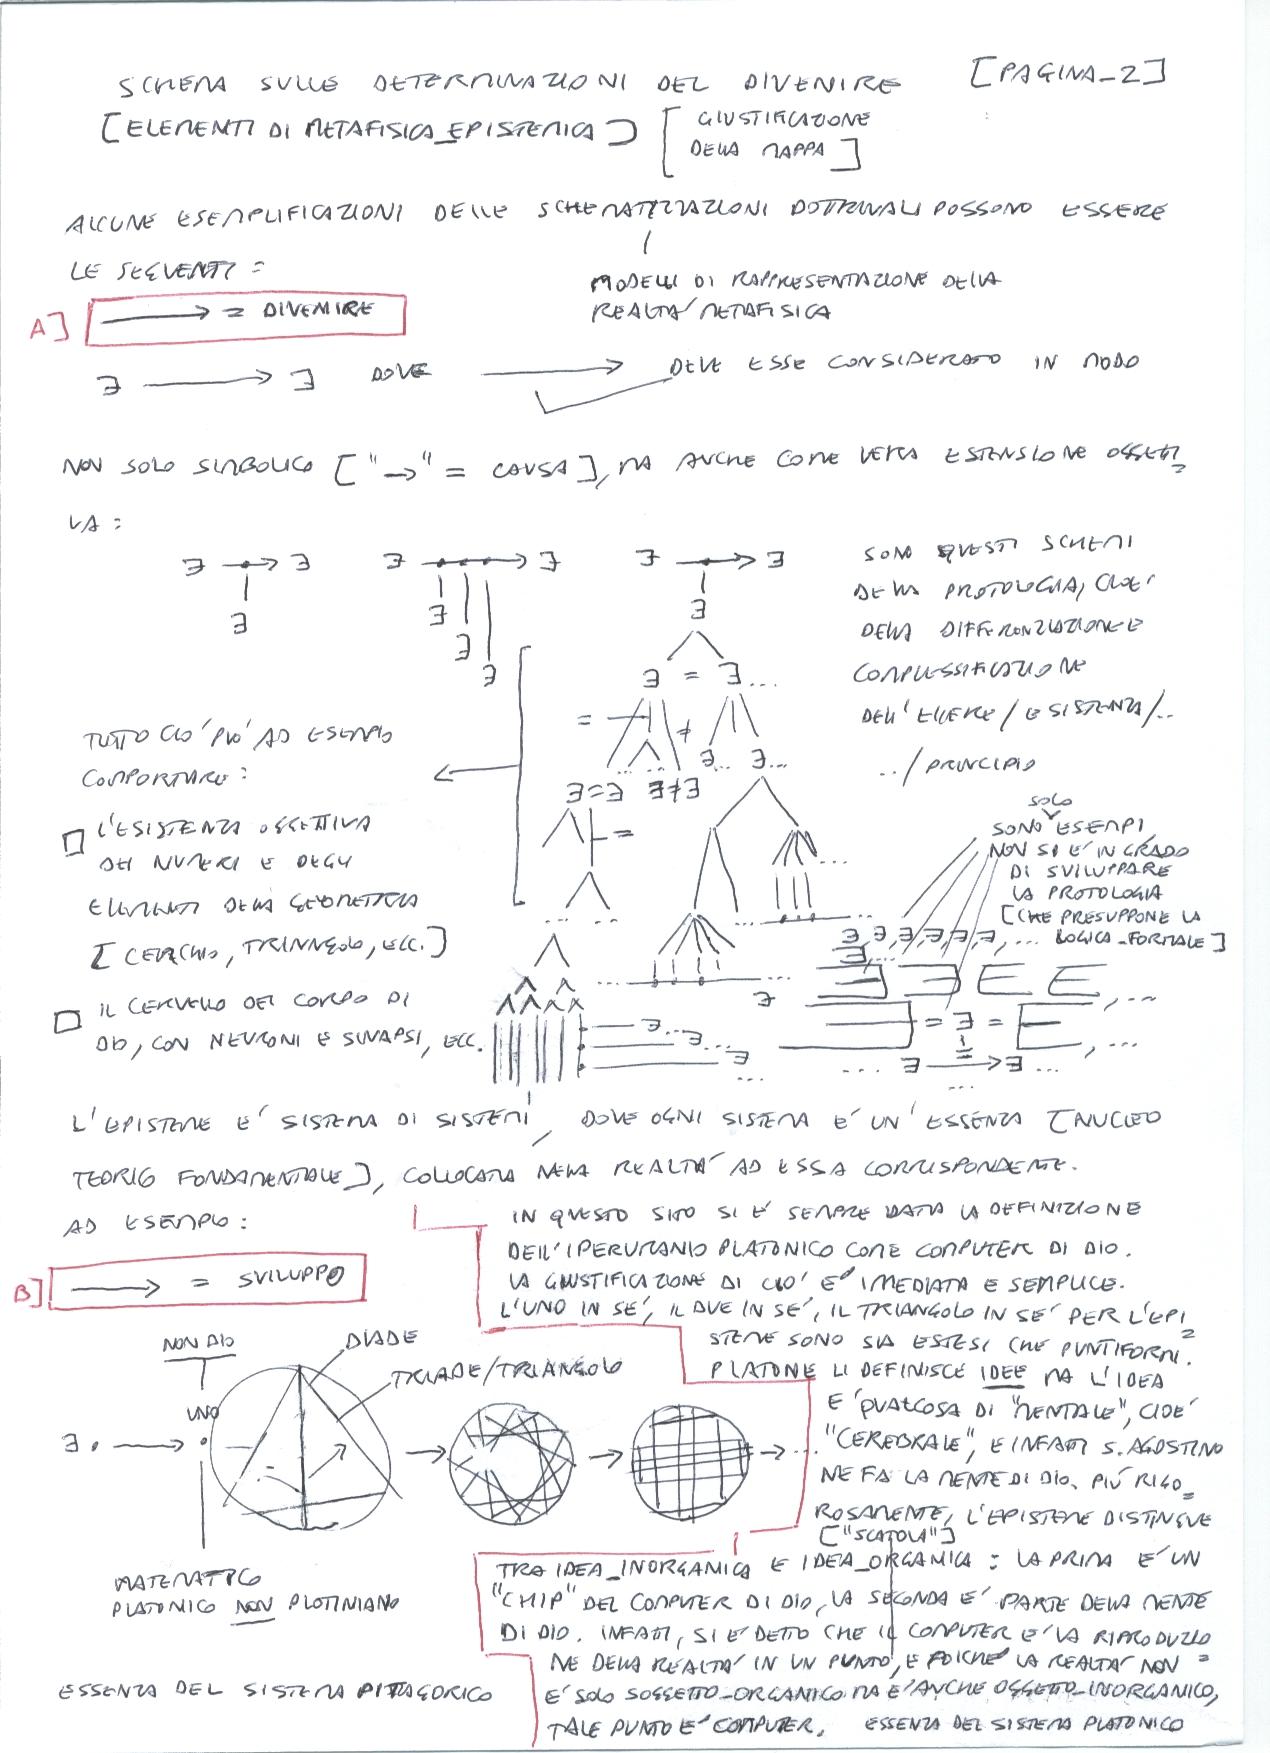 SCHEMA SULLE DETERMINAZIONI DEL DIVENIRE [PAGINA_2]
[ELEMENTI DI METAFISICA_EPISTEMICA] [GIUSTIFICAZIONE
DELLA MAPPA]
ALCUNE ESEMPLIFICAZIONI DELLE SCHEMATIZZAZIONI DOTTRINALI POSSONO ESSERE
LE SEGUENTI =
MODELLI DI RAPPRESENTAZIONE DELLA
REALTA' METAFISICA
A] ⟶ = DIVENIRE
∃ ⟶ ∃ DOVE ⟶ DEVE ESSE CONSIDERATO IN MODO
NON SOLO SIMBOLICO ["→" = CAUSA], MA ANCHE COME VERA ESTENSIONE OGGETTI=
VA :
∃ → ∃ ∃ → ∃ ∃ → ∃
∃ ∃ ∃ ∃ ∃
∃ = ∃...
= ≠
∃... ∃...
∃=∃ ∃≠∃
=
SONO QUESTI SCHEMI
DELLA PROTOLOGIA, CIOE'
DELLA DIFFERENZIAZIONE E
COMPLESSIFICAZIONE
DELL'ESSERE/ESISTENZA/..
../PRINCIPIO
TUTTO CIO' PUO' AD ESEMPIO
COMPORTARE :
□ L'ESISTENZA OGGETTIVA
DEI NUMERI E DEGLI
ELEMENTI DELLA GEOMETRIA
[CERCHIO, TRIANGOLO, ECC.]
□ IL CERVELLO DEL CORPO DI
DIO, CON NEURONI E SINAPSI, ECC.
SOLO
SONO ESEMPI,
NON SI E' IN GRADO
DI SVILUPPARE
LA PROTOLOGIA
[CHE PRESUPPONE LA
LOGICA_FORMALE]
∃,∃,∃,∃,∃,∃, ...
∃,...
∃ ∃ E E , ...
∃ = ∃ = E , ...
=
... ∃ ⟶ ∃ ...
...
∃
∃...
∃...
∃
...
L'EPISTEME E' SISTEMA DI SISTEMI, DOVE OGNI SISTEMA E' UN'ESSENZA [NUCLEO
TEORICO FONDAMENTALE], COLLOCATA NELLA REALTA' AD ESSA CORRISPONDENTE.
AD ESEMPIO :
B] ⟶ = SVILUPPO
IN QUESTO SITO SI E' SEMPRE DATA LA DEFINIZIONE
DELL'IPERURANIO PLATONICO COME COMPUTER DI DIO.
LA GIUSTIFICAZIONE DI CIO' E' IMEDIATA E SEMPLICE.
L'UNO IN SE', IL DUE IN SE', IL TRIANGOLO IN SE' PER L'EPI=
STEME SONO SIA ESTESI CHE PUNTIFORMI.
PLATONE LI DEFINISCE IDEE MA L'IDEA
E' QUALCOSA DI "MENTALE", CIOE'
"CEREBRALE", E INFATTI S. AGOSTINO
NE FA LA MENTE DI DIO. PIÙ RIGO=
ROSAMENTE, L'EPISTEME DISTINGUE
["SCATOLA"]
TRA IDEA_INORGANICA E IDEA_ORGANICA : LA PRIMA E' UN
"CHIP" DEL COMPUTER DI DIO, LA SECONDA E' PARTE DELLA MENTE
DI DIO. INFATTI, SI E' DETTO CHE IL COMPUTER E' LA RIPRODUZIO=
NE DELLA REALTA' IN UN PUNTO, E POICHE' LA REALTA' NON
E' SOLO SOGGETTO_ORGANICO MA E' ANCHE OGGETTO_INORGANICO,
TALE PUNTO E' COMPUTER. ESSENZA DEL SISTEMA PLATONICO
NON DIO
DIADE
TRIADE/TRIANGOLO
UNO
∃ . ⟶ . → → → ...
MATEMATICO
PLATONICO NON PLOTINIANO
ESSENZA DEL SISTEMA PITAGORICO